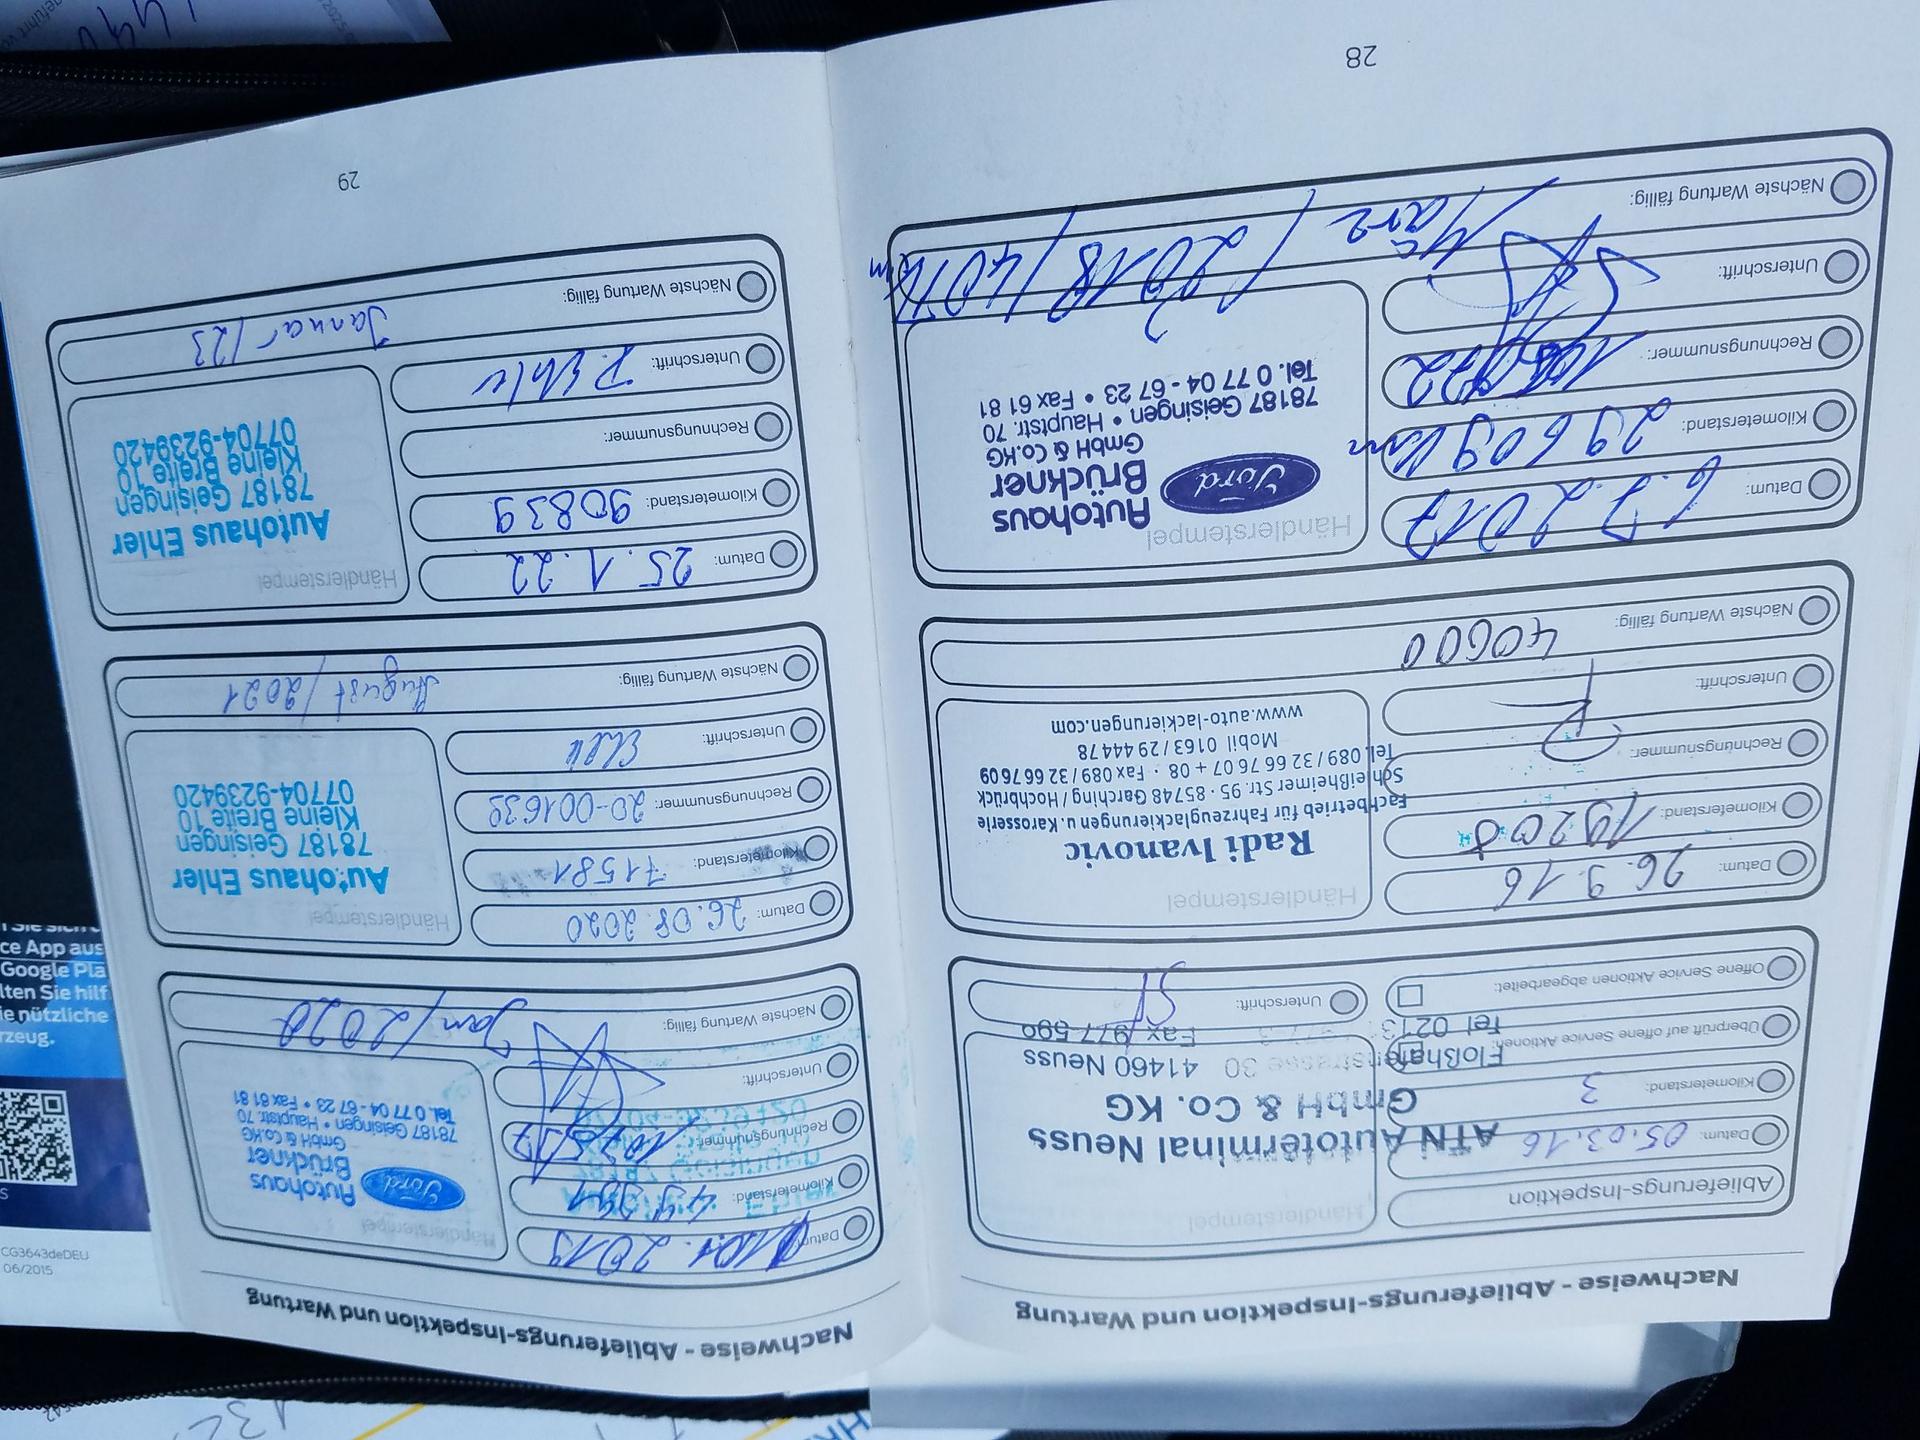 Nachweise - Ablieferungs-Inspektion und Wartung
Ablieferungs-Inspektion
Datum: 05.03.16
Kilometerstand: 3
Überprüft auf offene Service Aktionen:
Offene Service Aktionen abgearbeitet:
Händlerstempel
ATN Autoterminal Neuss
GmbH & Co. KG
41460 Neuss
Fax 977 590
Unterschrift:
Datum: 26.9.16
Kilometerstand: 19200
Rechnungsnummer:
Unterschrift:
Nächste Wartung fällig: 40600
Händlerstempel
Radi Ivanovic
Fachbetrieb für Fahrzeuglackierungen u. Karosserie
Schleißheimer Str. 95 · 85748 Garching / Hochbrück
Tel. 089 / 32 66 76 07 + 08 · Fax 089 / 32 66 76 09
Mobil 0163 / 29 444 78
www.auto-lackierungen.com
Datum: 6.7.2017
Kilometerstand: 29609 km
Rechnungsnummer:
Unterschrift:
Nächste Wartung fällig: März / 2018 / 40T km
Händlerstempel
Ford
Autohaus
Brückner
GmbH & Co.KG
78187 Geisingen • Hauptstr. 70
Tel. 0 77 04 - 67 23 • Fax 61 81
28
Nachweise - Ablieferungs-Inspektion und Wartung
Datum: 2019
Kilometerstand:
Rechnungsnummer:
Unterschrift:
Nächste Wartung fällig: Jan / 2020
Händlerstempel
Ford
Autohaus
Brückner
GmbH & Co.KG
78187 Geisingen • Hauptstr. 70
Tel. 0 77 04 - 67 23 • Fax 61 81
Datum: 26.08.2020
Kilometerstand: 71581
Rechnungsnummer: 20-001639
Unterschrift:
Nächste Wartung fällig: August / 2021
Händlerstempel
Autohaus Ehler
78187 Geisingen
Kleine Breite 10
07704-9239420
Datum: 25.1.22
Kilometerstand: 90839
Rechnungsnummer:
Unterschrift:
Nächste Wartung fällig: Januar /23
Händlerstempel
Autohaus Ehler
78187 Geisingen
Kleine Breite 10
07704-9239420
29
ce App aus
Google Pla
lten Sie hilf
ie nützliche
rzeug.
CG3643deDEU
06/2015